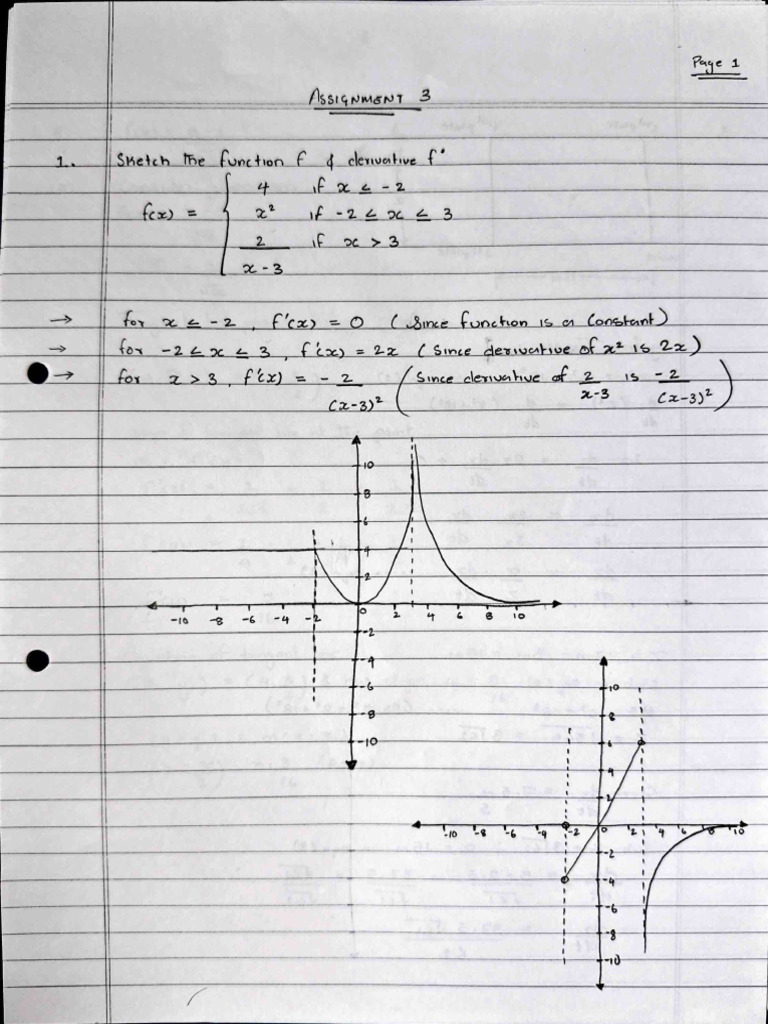 Page 1
ASSIGNMENT 3
1. Sketch the function f & derivative f'
4 if x ≤ -2
f(x) = { x² if -2 < x ≤ 3
2 / (x-3) if x > 3
→ for x ≤ -2, f'(x) = 0 (Since function is a Constant)
→ for -2 < x ≤ 3, f'(x) = 2x (Since derivative of x² is 2x)
→ for x > 3, f'(x) = - 2/(x-3)² (Since derivative of 2/(x-3) is -2/(x-3)²)
10
8
6
4
2
-10 -8 -6 -4 -2 0 2 4 6 8 10
-2
-4
-6
-8
-10
10
8
6
4
2
-10 -8 -6 -4 -2 0 2 4 6 8 10
-2
-4
-6
-8
-10